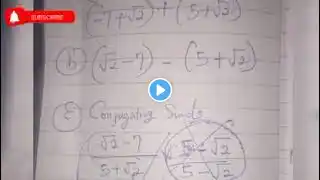 SUBSCRIBE
(-7+√2) + (5+√2)
(b) (√2-7) - (5+√2)
(c) Conjugating Surds
√2-7
5+√2 5-√2